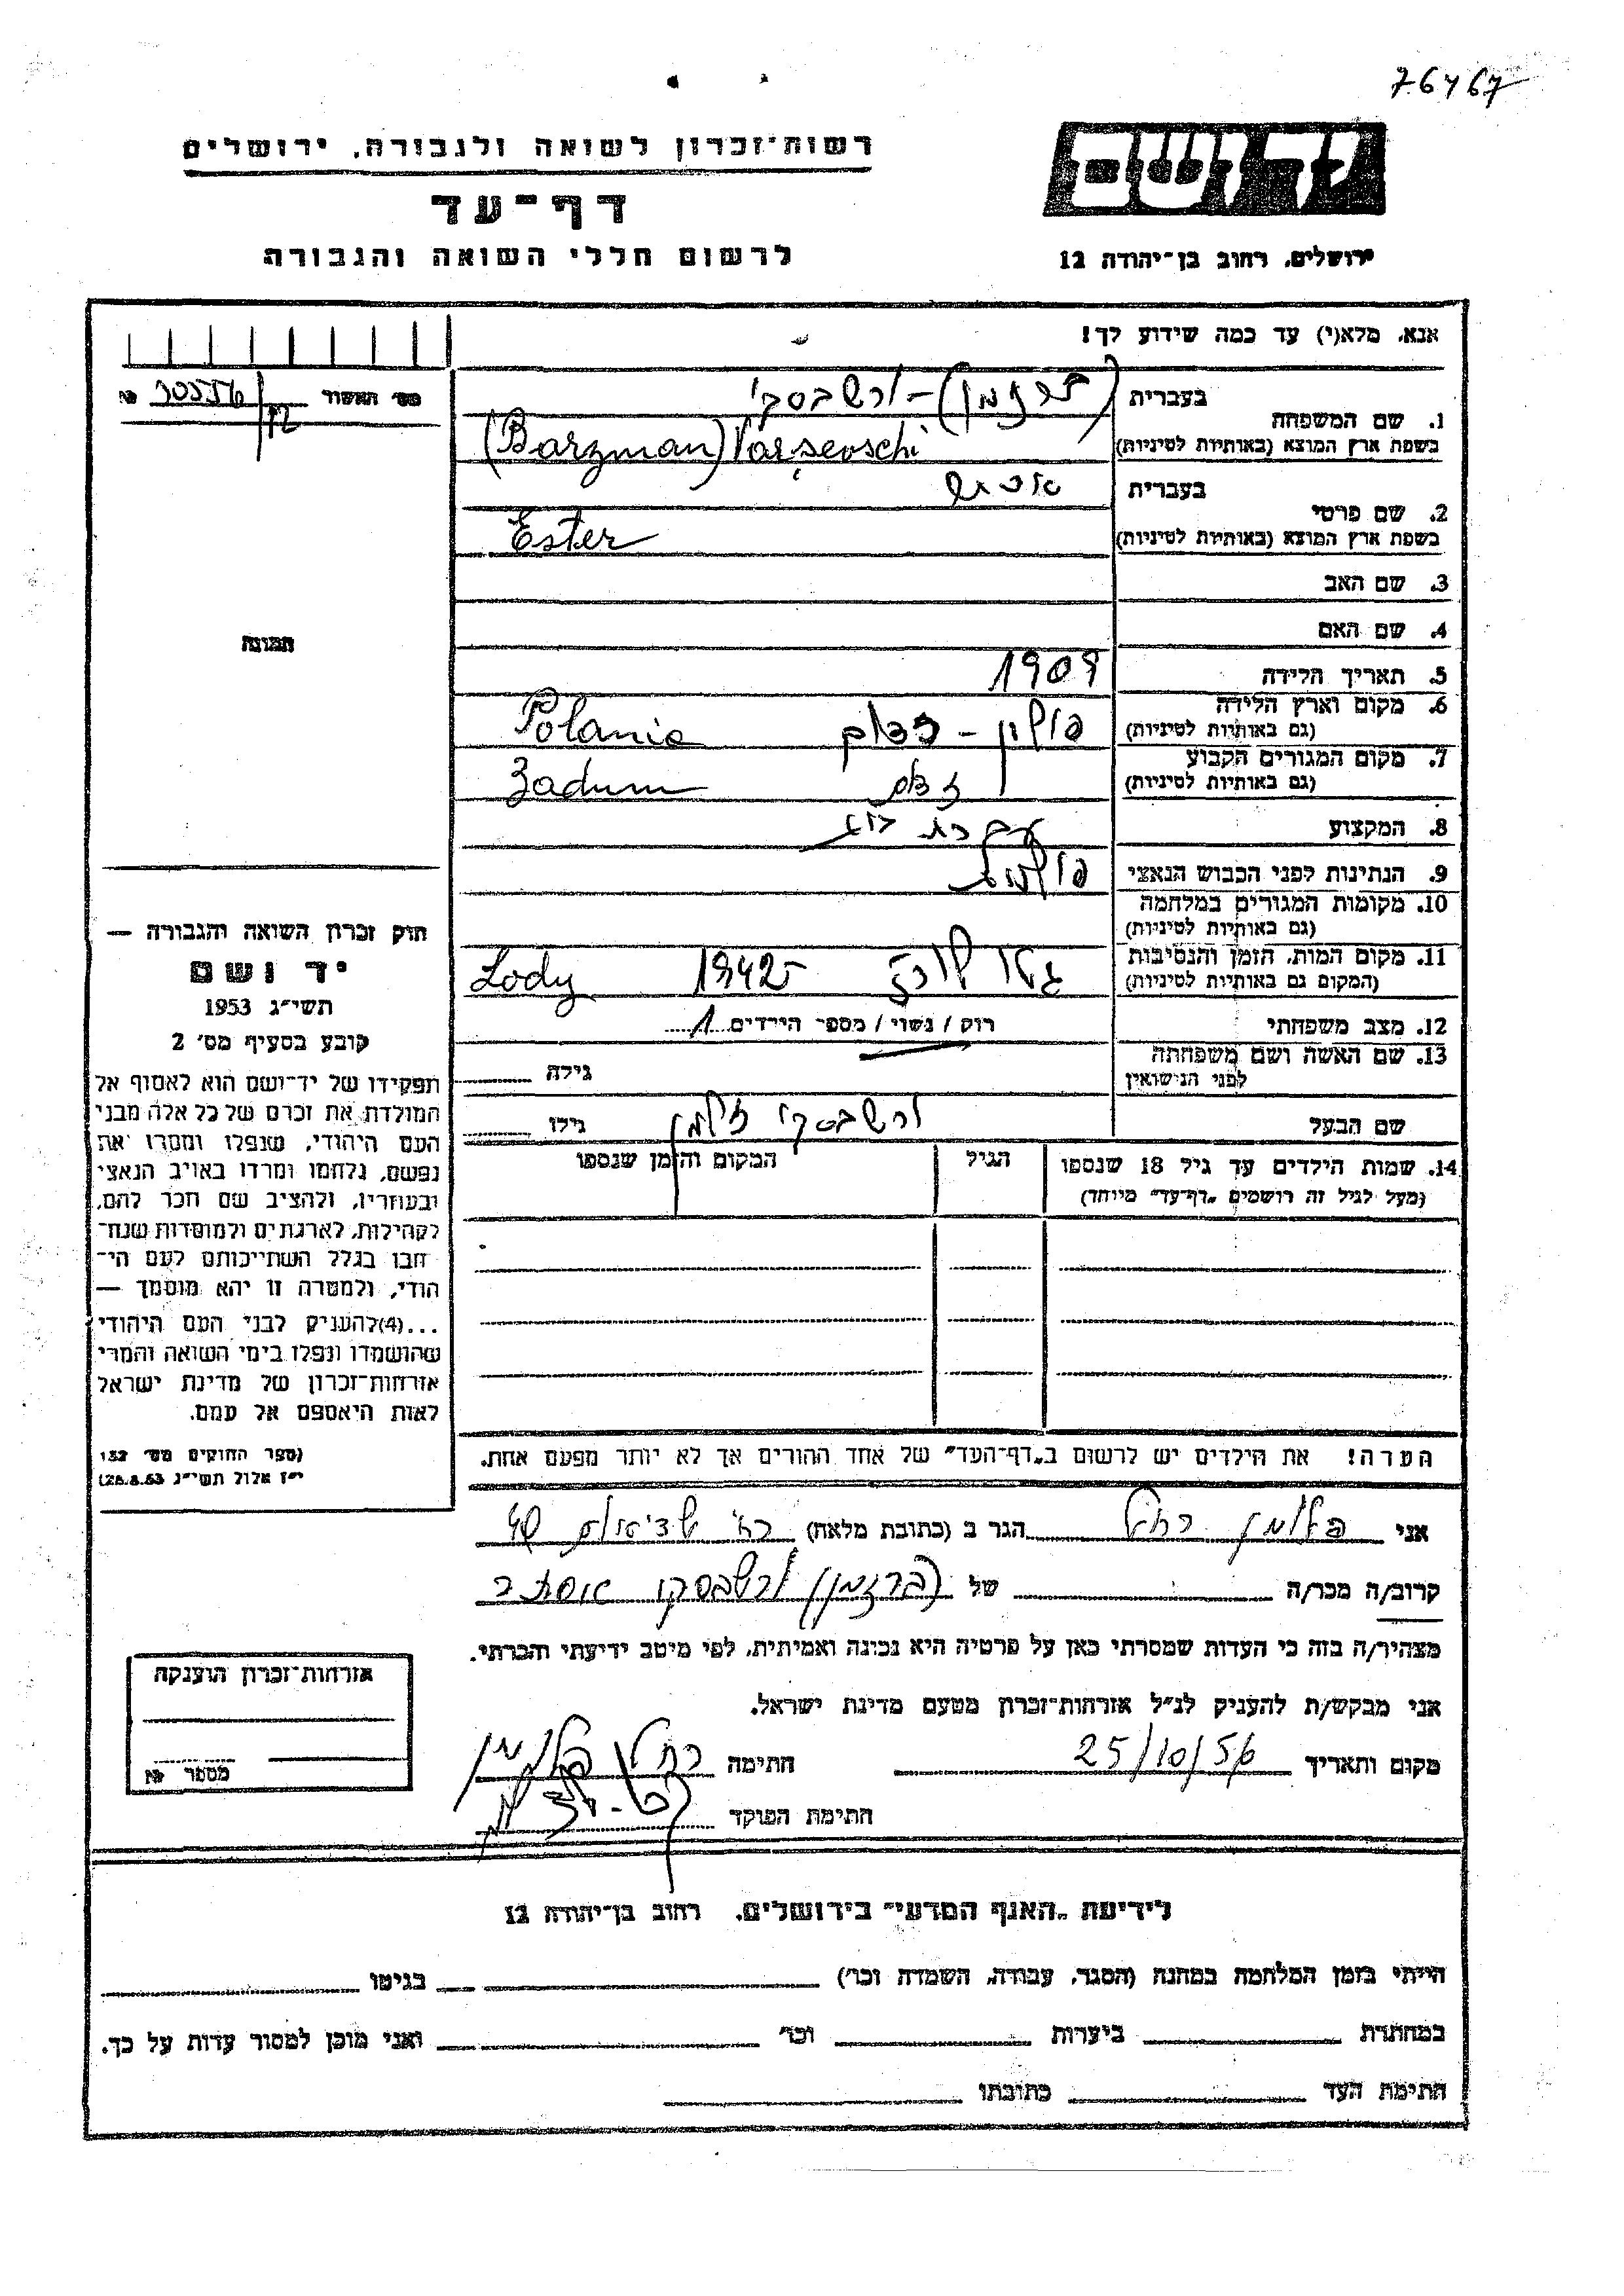 76467
רשות־זכרון לשואה ולגבורה, ירושלים
יד ושם
דף־עד
לרשום חללי השואה והגבורה
ירושלים, רחוב בן־יהודה 12
אנא, מלא(י) עד כמה שידוע לך!
מס׳ האשור №
1. שם המשפחה
בעברית (ברזמן) - ורשבסקי
בשפת ארץ המוצא (באותיות לטיניות) (Barzman) Varşevschi
2. שם פרטי
בעברית
בשפת ארץ המוצא (באותיות לטיניות) Ester
3. שם האב
4. שם האם
5. תאריך הלידה 1909
6. מקום וארץ הלידה
(גם באותיות לטיניות) פולין - Polania
7. מקום המגורים הקבוע
(גם באותיות לטיניות) Zadum
8. המקצוע עקרת בית
9. הנתינות לפני הכבוש הנאצי פולנית
10. מקומות המגורים במלחמה
(גם באותיות לטיניות)
11. מקום המות, הזמן והנסיבות
(המקום גם באותיות לטיניות) גטו לודז 1942 Lody
12. מצב משפחתי רוק / נשוי / מספר הילדים 1
13. שם האשה ושם משפחתה
לפני הנישואין גילה
שם הבעל ורשבסקי זלמן גילו
14. שמות הילדים עד גיל 18 שנספו
(מעל לגיל זה רושמים „דף־עד״ מיוחד)
הגיל
המקום והזמן שנספו
הערה! את הילדים יש לרשום ב„דף־העד״ של אחד ההורים אך לא יותר מפעם אחת.
תמונה
חוק זכרון השואה והגבורה —
יד ושם
תשי״ג 1953
קובע בסעיף מס׳ 2
תפקידו של יד־ושם הוא לאסוף אל
המולדת את זכרם של כל אלה מבני
העם היהודי, שנפלו ומסרו את
נפשם, נלחמו ומרדו באויב הנאצי
ובעוזריו, ולהציב שם וזכר להם,
לקהילות, לארגונים ולמוסדות שנח־
רבו בגלל השתייכותם לעם הי־
הודי, ולמטרה זו יהא מוסמך —
...(4)להעניק לבני העם היהודי
שהושמדו ונפלו בימי השואה והמרי
אזרחות־זכרון של מדינת ישראל
לאות היאספם אל עמם.
(ספר החוקים מס׳ 132
י״ז אלול תשי״ג 28.8.53)
אני פלומן רחל הגר ב (כתובת מלאה)
קרוב/ה מכר/ה של (ברזמן) ורשבסקי אסתר
מצהיר/ה בזה כי העדות שמסרתי כאן על פרטיה היא נכונה ואמיתית, לפי מיטב ידיעתי והכרתי.
אני מבקש/ת להעניק לנ״ל אזרחות־זכרון מטעם מדינת ישראל.
מקום ותאריך 25/10/56 חתימה
חתימת הפוקד
אזרחות־זכרון הוענקה
מספר №
לידיעת „האגף המדעי״ בירושלים, רחוב בן־יהודה 12
הייתי בזמן המלחמה במחנה (הסגר, עבודה, השמדה וכו׳) בגיטו
במחתרת ביערות וכו׳ ואני מוכן למסור עדות על כך.
חתימת העד כתובתו